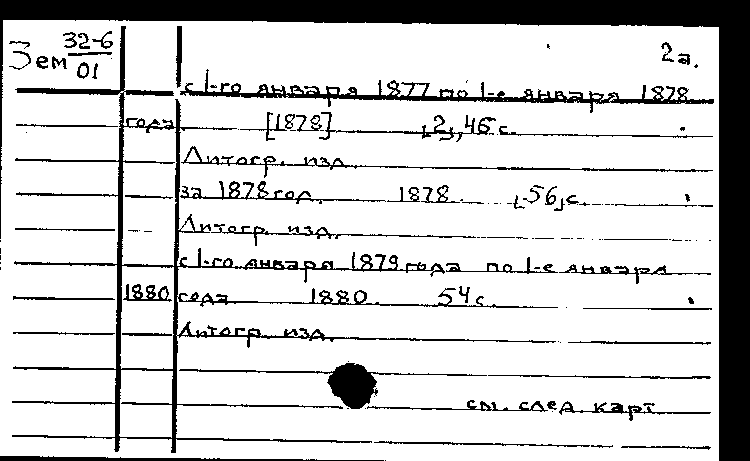 Зем 32-6/01
2а.
с 1-го января 1877 по 1-е января 1878
года [1878] [2], 46 с.
Литогр. изд.
за 1878 год. 1878. [56] с.
Литогр. изд.
с 1-го января 1879 года по 1-е января
1880 года 1880. 54 с.
Литогр. изд.
см. след. карт